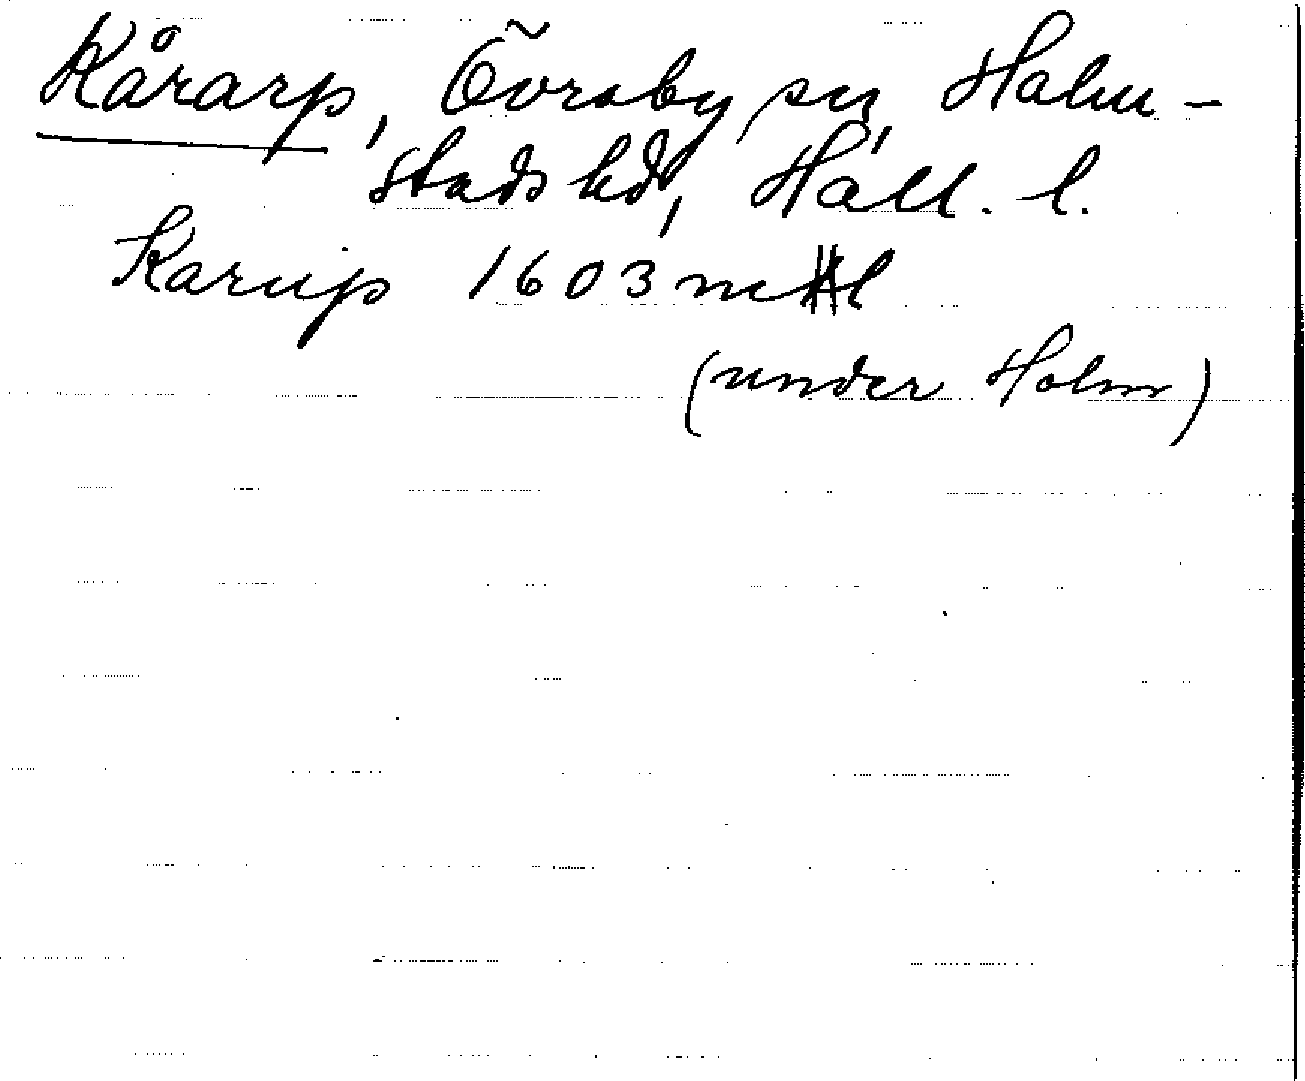 Kårarp, Övraby sn, Halm-
stads hd, Hall. l.
Karup 1603 mtl
(under Holm)